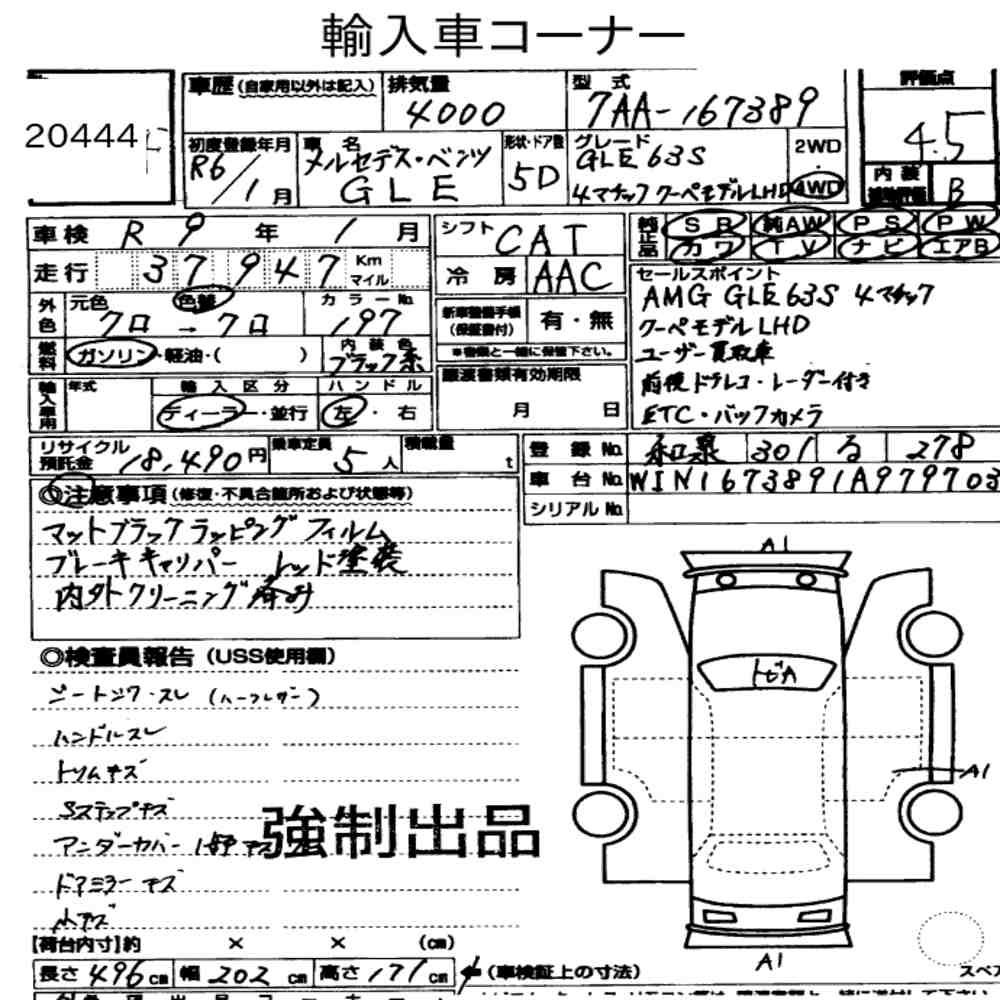 輸入車コーナー
20444
車歴 (自家用以外は記入)
排気量 4000
型式 7AA-167389
評価点 4.5
初度登録年月 R6/1月
車名 メルセデス・ベンツ GLE
形状・ドア数 5D
グレード GLE63S 4マチック クーペモデルLHD
2WD・4WD
内装補助評価 B
車検 R9年1月
走行 37947 Km マイル
シフト CAT
冷房 AAC
純正品 SR 純AW PS PW
カワ TV ナビ エアB
外色 元色 クロ → 色替 クロ
カラーNo. 197
燃料 ガソリン・軽油・( )
内装色 ブラック系
新車整備手帳(保証書付) 有・無
※書類と一緒に保管下さい。
セールスポイント
AMG GLE63S 4マチック
クーペモデルLHD
ユーザー買取車
前後ドラレコ・レーダー付き
ETC・バックカメラ
輸入車用 年式
輸入区分 ディーラー・並行
ハンドル 左・右
譲渡書類有効期限 月 日
リサイクル預託金 18,490円
乗車定員 5人
積載量 t
登録No. 和泉 301 る 278
車台No. W1N1673891A979703
シリアルNo.
◎注意事項 (修復・不具合箇所および状態等)
マットブラックラッピングフィルム
ブレーキキャリパー レッド塗装
内外クリーニング済み
◎検査員報告 (USS使用欄)
シートシワ・スレ (ハーフレザー)
ハンドルスレ
トリムキズ
Sステップキズ
アンダーカバー 1部キズ
ドアミラーキズ
小キズ
強制出品
A1
トビA
A1
A1
【荷台内寸】約 × × (cm)
長さ 496cm 幅 202cm 高さ 171cm
(車検証上の寸法)
スペア